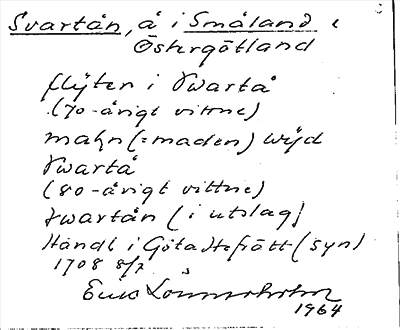 Svartån, å i Småland &
Östergötland
flyten i Swartå
(70-årigt vittne)
mahn (=maden) wijd
Swartå
(80-årigt vittne)
swartån (i utslag)
Handl i Göta Hofrätt (syn)
1708 8/7
Erik
1964